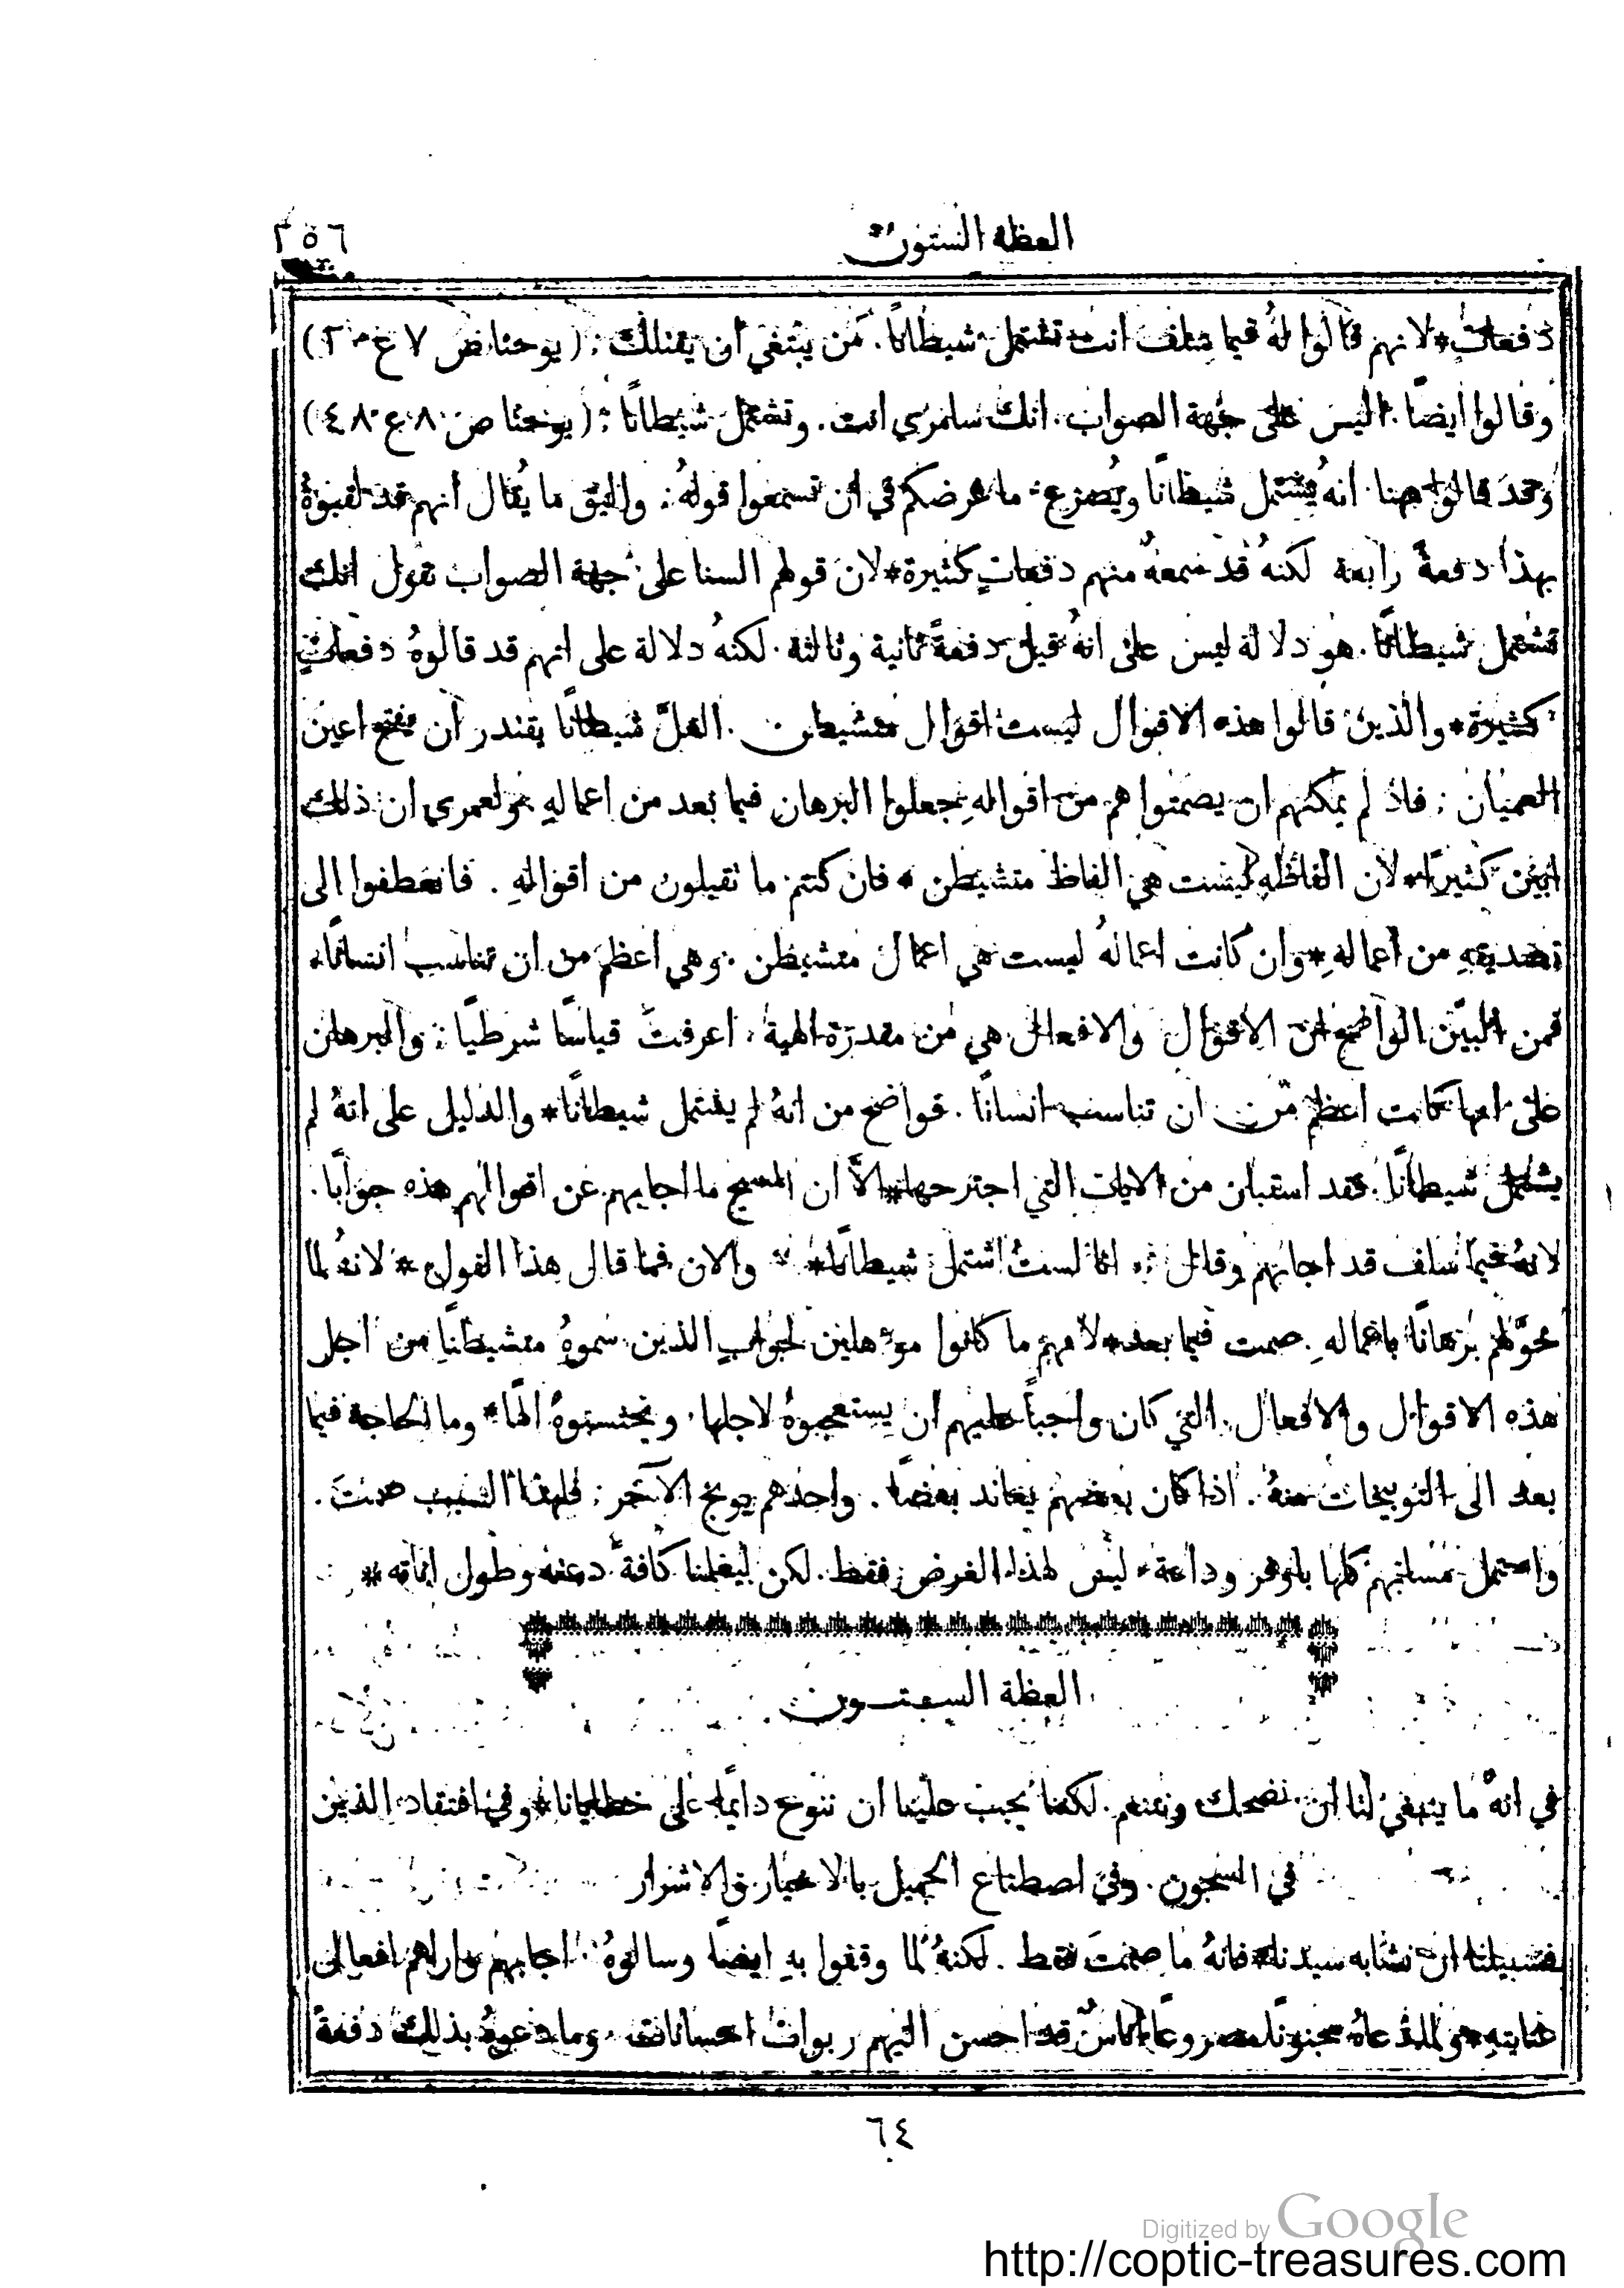 العظة الستون ٢٥٦
دفعات* لانهم قالوا لهُ فيما سلف انت تشتمل شيطانًا. مَن يبتغي أن يقتلك : (يوحنا ص ٧ ع ٢٠)
وقالوا ايضًا. اليس على جهة الصواب. انك سامري انت. وتشتمل شيطانًا : (يوحنا ص ٨ ع ٤٨)
وقد قالوا هنا. انه يشتمل شيطانًا ويُصرع. ما غرضكم في ان تسمعوا قولهُ : واليق ما يُقال أنهم قد لقبوهُ
بهذا دفعةً رابعة لكنهُ قد سمعهُ منهم دفعاتٍ كثيرة* لان قولهم السنا على جهة الصواب نقول انك
تشتمل شيطانًا. هو دلالة ليس على انهُ قيل دفعةً ثانية وثالثة. لكنهُ دلالة على انهم قد قالوهُ دفعاتٍ
كثيرة* والذين قالوا هذه الاقوال ليست اقوال متشيطن. العلَّ شيطانًا يقتدر ان يفتح اعين
العميان : فاذ لم يمكنهم ان يصمتوا هم من اقوالهِ جعلوا البرهان فيما بعد من اعمالهِ : ولعمري ان ذلك
ابين كثيرًا* لان الفاظهِ ليست هي الفاظ متشيطن* فان كنتم ما تقبلون من اقوالهِ . فانعطفوا الى
تصديقهِ من أعمالهِ* وان كانت اعمالهُ ليست هي اعمال متشيطن. وهي اعظم من ان تناسب انسانًا.
فمن البيّن الواضح ان الاقوال والافعال هي من مقدرة الهية. اعرفتَ قياسًا شرطيًا : والبرهان
على انها كانت اعظم من ان تناسب انسانًا. فواضح من انهُ لم يشتمل شيطانًا* والدليل على انهُ لم
يشتمل شيطانًا. فقد استبان من الايات التي اجترحها* الاَّ ان المسيح ما اجابهم عن اقوالهم هذه جوابًا.
لانهُ فيما سلف قد اجابهم وقائل : انا لستُ اشتمل شيطانًا* والان فما قال هذا القول* لانهُ لما
خوَّلهم برهانًا باعمالهِ. صمت فيما بعد* لانهم ما كانوا موءهلين لجوابٍ الذين سموهُ متشيطنًا من اجل
هذه الاقوال والافعال. التي كان واجبًا عليهم ان يستعجبوهُ لاجلها. ويحتسبوهُ الهًا* وما الحاجة فيما
بعد الى التوبيخات منهُ . اذا كان بعضهم يعاند بعضًا. واحدهم يوبخ الآخر : فلهذا السبب صمتَ.
واحتمل مسابتهم كلها باوفر وداعة. ليس لهذا الغرض فقط. لكن ليعلمنا كافةً دعته وطول اناته*
العظة الستون
في انهُ ما ينبغي لنا ان نضحك ونتنعم. لكننا يجب علينا ان ننوح دايمًا على خطايانا* وفي افتقاد الذين
في السجون. وفي اصطناع الجميل بالاخيار والاشرار
فسبيلنا ان نشابه سيدنا* فانهُ ما صمتَ فقط . لكنهُ لما وقفوا بهِ ايضًا وسالوهُ اجابهم واراهم افعال
عنايتهِ : ولما دعاهُ مجنونًا مصروعًا اناسٌ قد احسن اليهم ربوات احسانات. وما دعوهُ بذلك دفعةً
٦٤
Digitized by Google
http://coptic-treasures.com